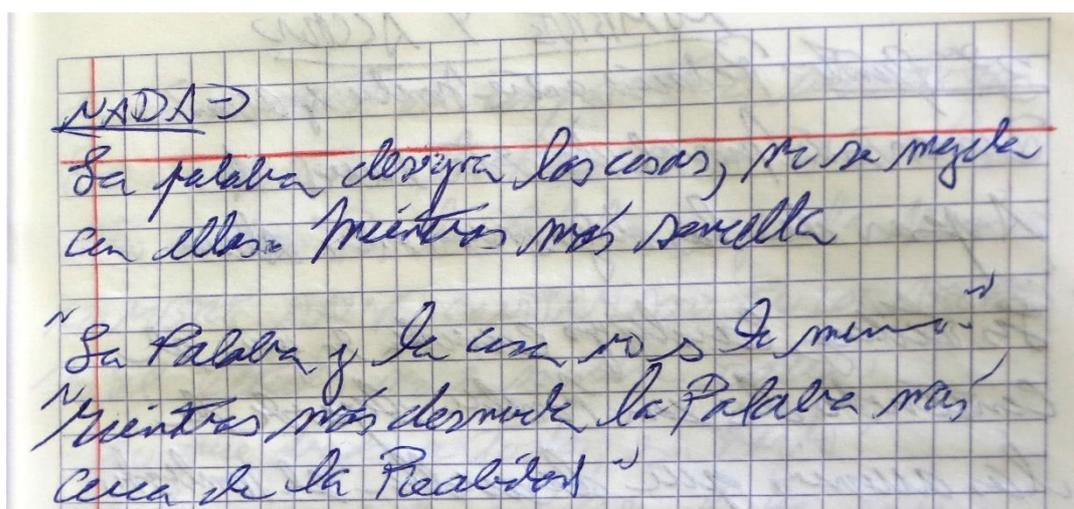 NADA →
La palabra designa las cosas, no se mezcla
con ellas. Mientras más sencilla
"La Palabra y la cosa no es lo mismo."
"Mientras más desnuda la Palabra más
cerca de la Realidad"